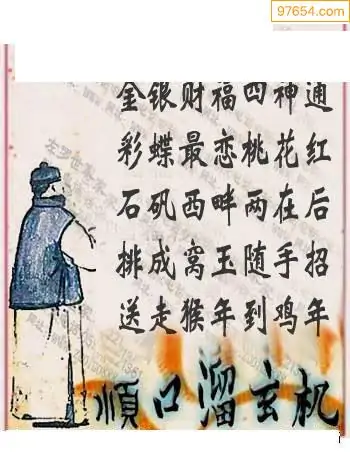 97654.com
金银财福四神通
彩蝶最恋桃花红
石矶西畔两在后
排成窝玉随手招
送走猴年到鸡年
順口溜玄机